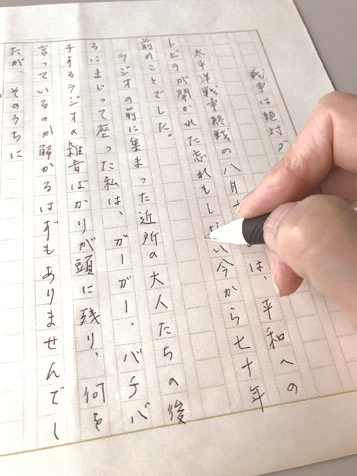 戦争は絶対ダ
太平洋戦争終戦の八月 は、平和への
トビラが開かれた忘れもしない今から七十年
前のことでした。
ラジオの前に集まった近所の大人たちの後
ろにまじって座った私は、ガーガー、バチバ
チするラジオの雑音ばかりが頭に残り、何を
言っているのか解かるはずもありませんでし
たが、そのうちに